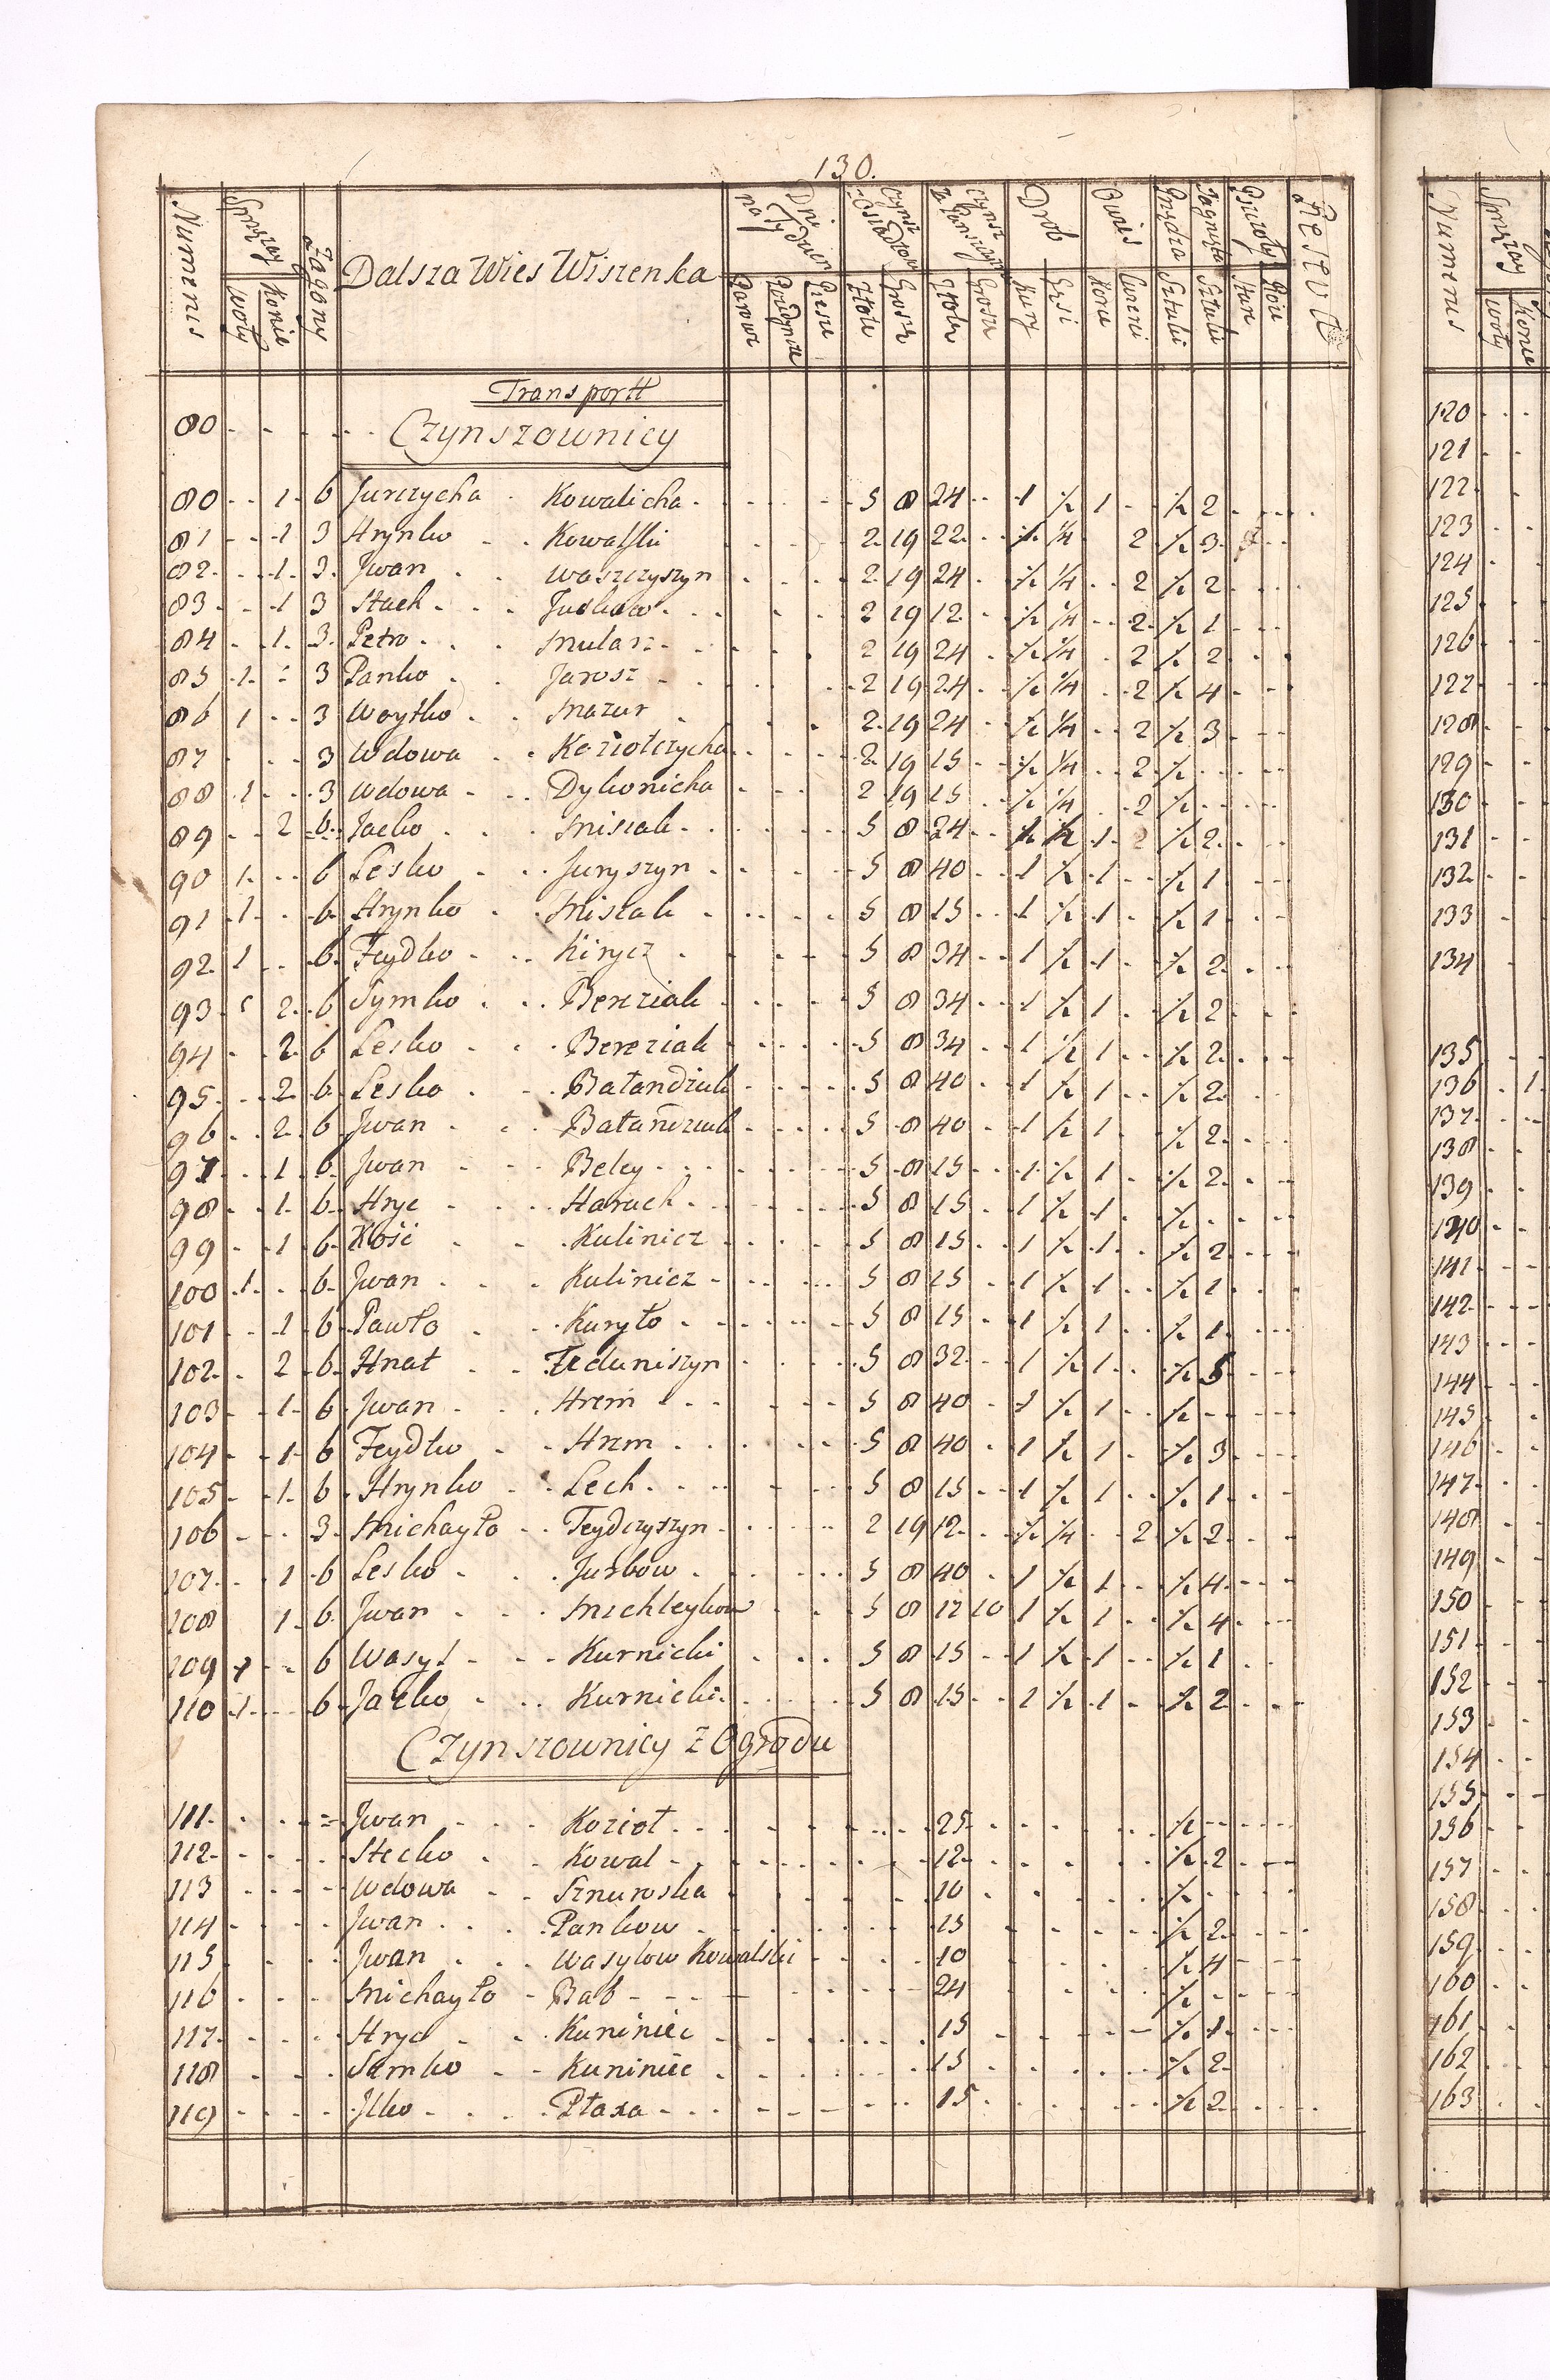 130.
Numerus Sprzęzay Zagony Dalsza Wies Wiszenka Dni na Tydzien Czynsz Czynsz Drob Owies Przędza Jagnięta Pszczoły Resztu
Woły Konie Parowe Poiedyncze Piesze Złote Grosze Złote Grosze Kury Gęsi Korce Sztuki Sztuki Stare
Transportt
80 Czynszownicy
80 1 6 Jurczycha Kowalicha 5 8 24 1 ½ 1 ½ 2
81 1 3 Hrynko Kowalski 2 19 22 ½ ¼ 2 ½ 3
82 1 3 Jwan Waszczyszyn 2 19 24 ½ ¼ 2 ½ 2
83 1 3 Stach 2 19 12 ½ ¼ 2 ½ 1
84 1 3 Petro Mularz 2 19 24 ½ ¼ 2 ½ 2
85 1 3 Panko Jarosz 2 19 24 ½ ¼ 2 ½ 4
86 1 3 Woytko Mazur 2 19 24 ½ ¼ 2 ½ 3
87 3 Wdowa Koziołczycha 2 19 15 ½ ¼ 2 ½
88 1 3 Wdowa Dykonicha 2 19 15 ½ ¼ 2 ½
89 2 6 Jacko Misiak 5 8 24 ½ 1 ½ 2
90 1 6 Lesko Juryszyn 5 8 40 1 ½ 1 ½ 1
91 1 6 Hrynko Misiak 5 8 15 1 ½ 1 ½ 1
92 1 6 Feydko Kirycz 5 8 34 1 ½ 1 ½ 2
93 2 6 Symko Bereziak 5 8 34 1 ½ 1 ½ 2
94 2 6 Lesko Bereziak 5 8 34 1 ½ 1 ½ 2
95 2 6 Lesko Bałandziuk 5 8 40 1 ½ 1 ½ 2
96 2 6 Jwan Bałandziuk 5 8 40 1 ½ 1 ½ 2
97 1 6 Jwan Beley 5 8 15 1 ½ 1 ½ 2
98 1 6 Hryc Harach 5 8 15 1 ½ 1 ½
99 1 6 Kość Kulinicz 5 8 15 1 ½ 1 ½ 2
100 1 6 Jwan Kulinicz 5 8 15 1 ½ 1 ½ 1
101 1 6 Pawło Kuryło 5 8 15 1 ½ 1 ½ 1
102 2 6 Hnat Feduniszyn 5 8 32 1 ½ 1 ½ 5
103 1 6 Jwan Hrem 5 8 40 1 ½ 1 ½
104 1 6 Feydko Hrem 5 8 40 1 ½ 1 ½ 3
105 1 6 Hrynko Lech 5 8 15 1 ½ 1 ½ 1
106 3 Michayło Feydczyszyn 2 19 12 ½ ¼ 2 ½ 2
107 1 6 Lesko Jurkow 5 8 40 1 ½ 1 ½ 4
108 1 6 Jwan Michleykow 5 8 12 10 1 ½ 1 ½ 4
109 1 6 Wasyl Kurnicki 5 8 15 1 ½ 1 ½ 1
110 1 6 Jacko Kurnicki 5 8 15 1 ½ 1 ½ 2
Czynszownicy z Ogrodu
111 Jwan Kozioł 25 ½
112 Stecko Kowal 12 ½ 2
113 Wdowa Sznuroska 10 ½
114 Jwan Pankow 15 ½ 2
115 Jwan Wasylow Kowalski 10 ½ 4
116 Michayło Bab 24 ½
117 Hryc Kuniniec 15 ½ 1
118 Samko Kuniniec 15 ½ 2
119 Jlko Ptaxa 15 ½ 2
Numerus Sprzęzay
Woły Konie
120
121
122
123
124
125
126
127
128
129
130
131
132
133
134
135
136 1
137
138
139
140
141
142
143
144
145
146
147
148
149
150
151
152
153
154
155
156
157
158
159
160
161
162
163